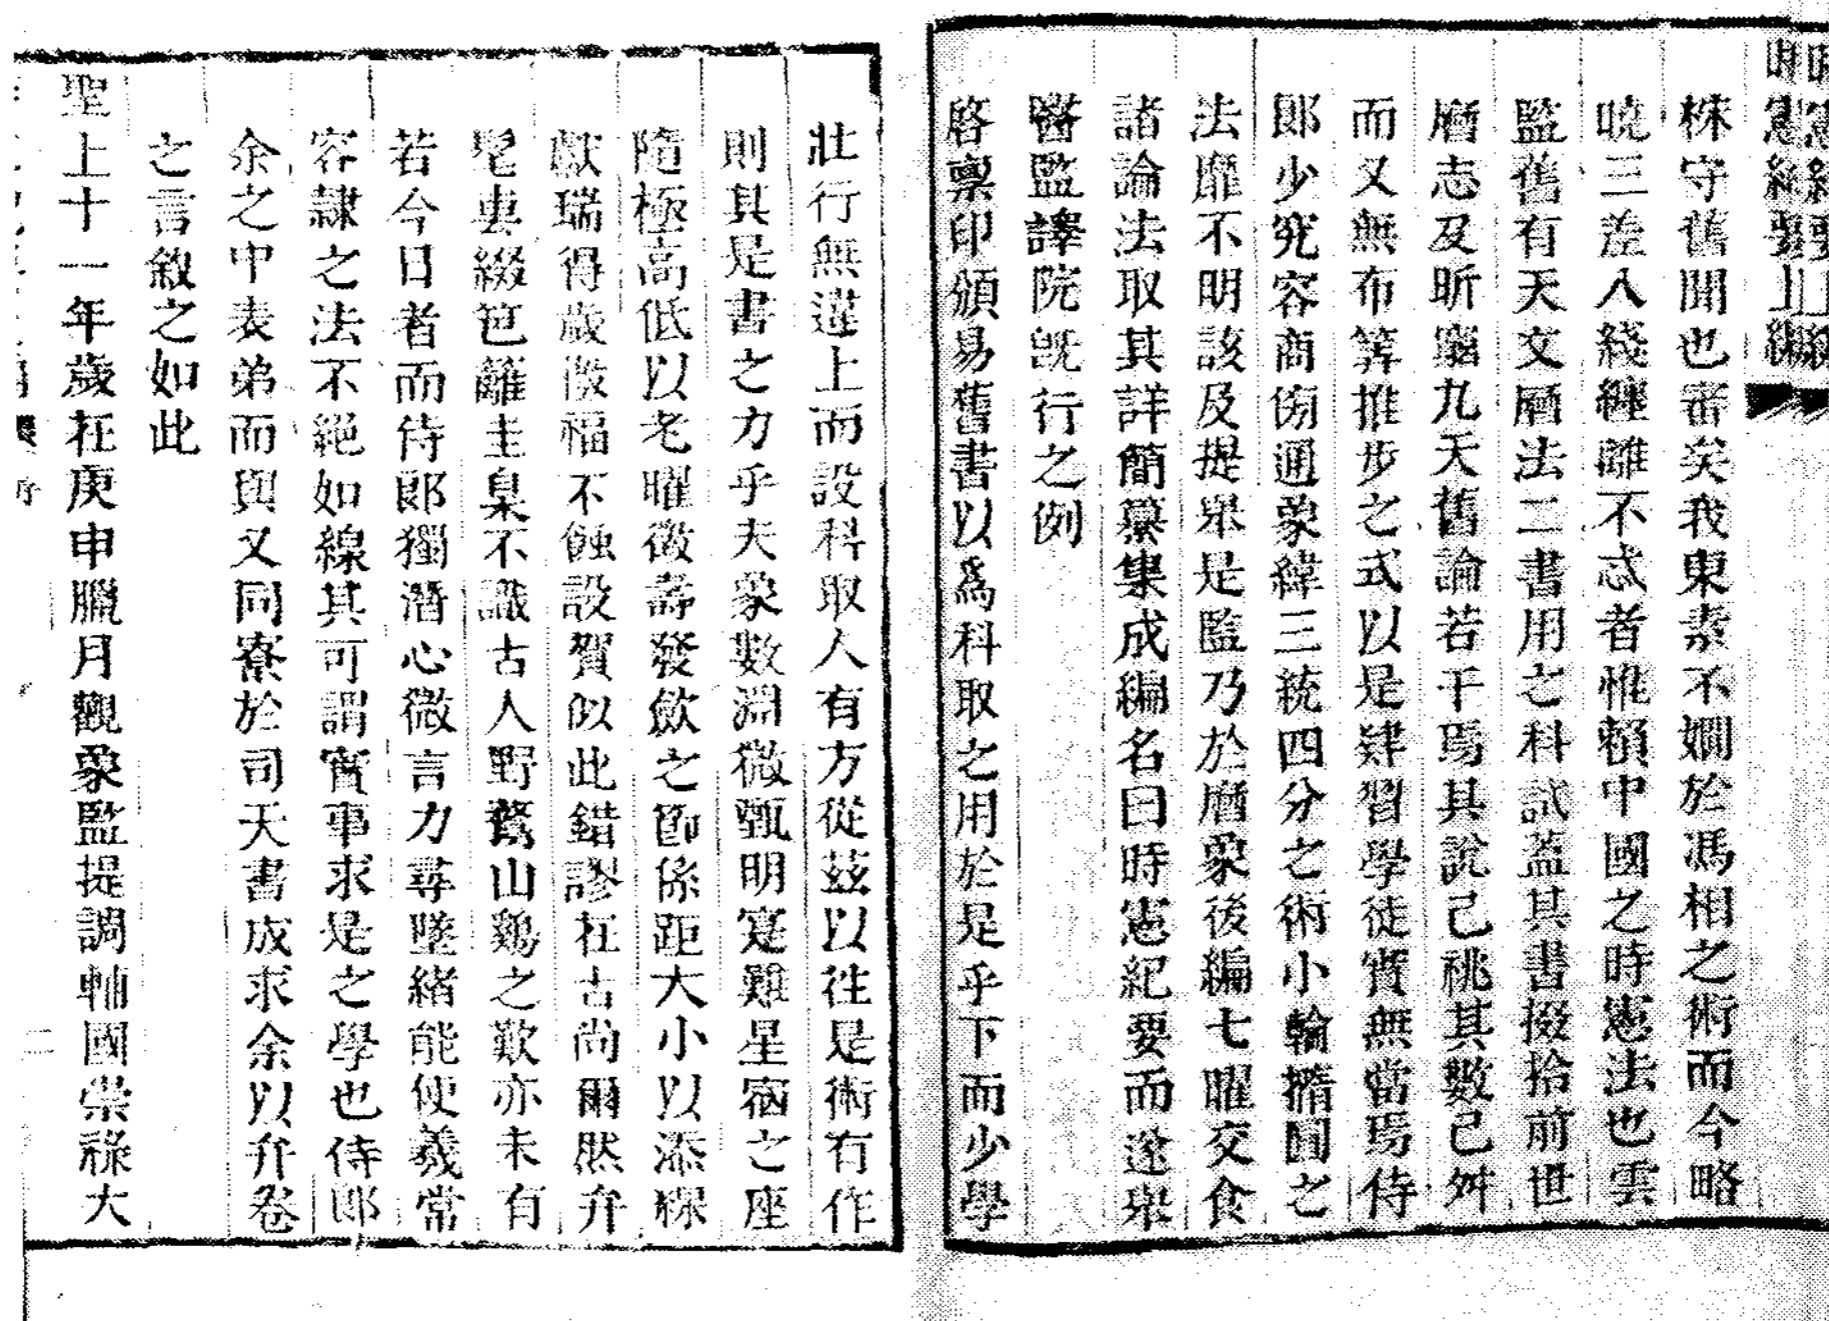 時憲紀要上編
株守舊聞也審矣我東素不嫺於馮相之術而今略
曉三差八綫纏離不忒者惟賴中國之時憲法也雲
監舊有天文曆法二書用之科試蓋其書掇拾前世
曆志及昕幽九天舊論若干焉其說已祧其數已舛
而又無布筭推步之式以是肄習學徒實無當焉侍
郞少究容商傍通象緯三統四分之術小輪撱圓之
法靡不明該及提擧是監乃於曆象後編七曜交食
諸論法取其詳簡彙集成編名曰時憲紀要而遂櫽
醫監譯院旣行之例
啓稟印頒易舊書以爲科取之用於是乎下而少學
壯行無違上而設科取人有方從玆以往是術有作
則其是書之力乎夫象數淵微甄明寔難星宿之座
隨極高低以老曜徵壽發斂之節係距大小以添線
獻瑞得歲徼福不蝕設賀似此錯謬在古尙爾然弁
髦軎綴笆籬圭臬不識古人野鶩山鷄之歎亦未有
若今日者而侍郞獨潛心微言力尋墜緖能使羲常
容隷之法不絕如線其可謂實事求是之學也侍郞
余之中表弟而與又同寮於司天書成求余以弁卷
之言敘之如此
聖上十一年歲在庚申臘月觀象監提調輔國崇祿大
序
二